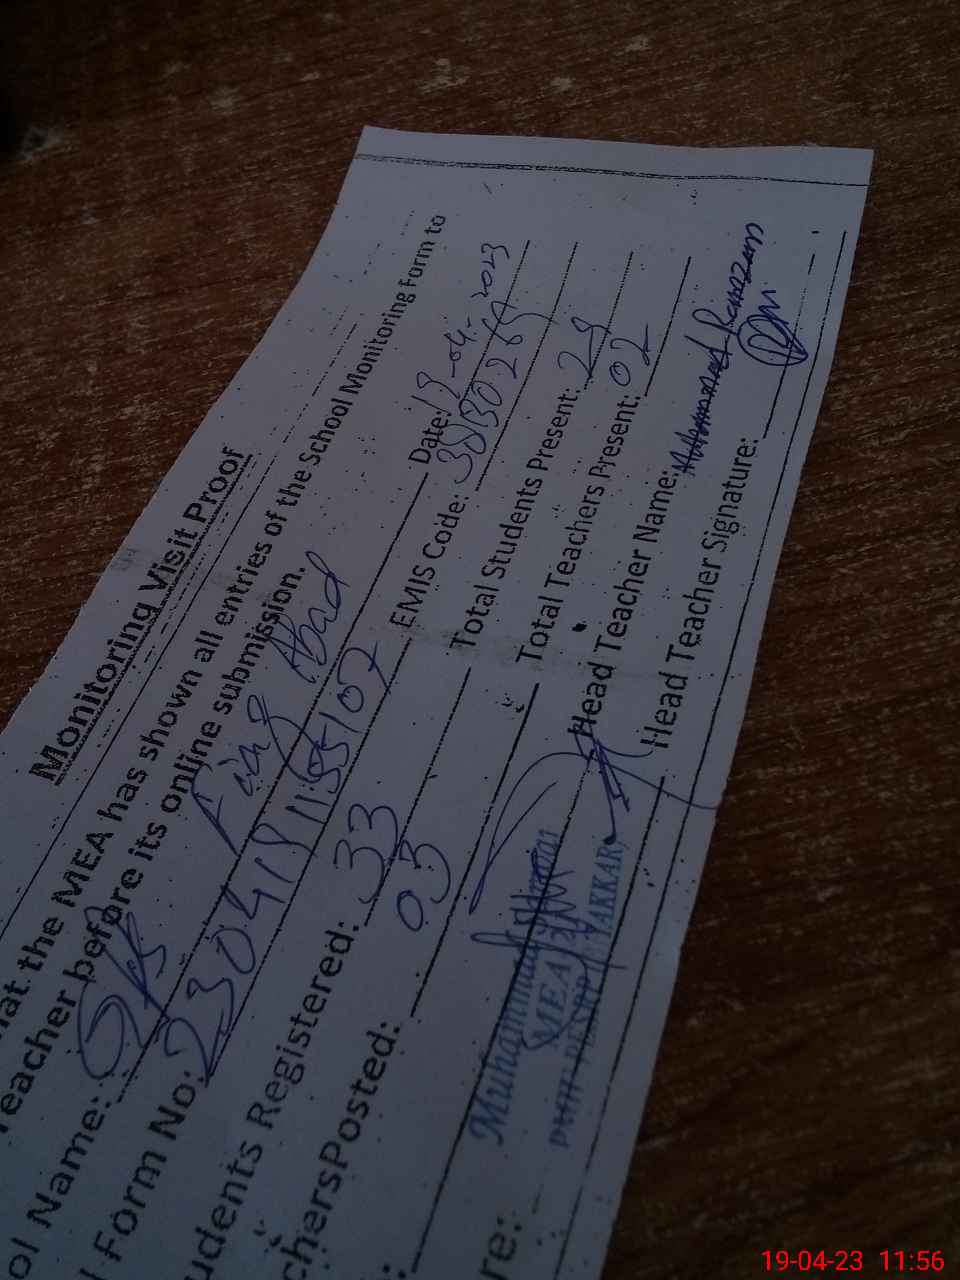 Monitoring Visit Proof
hat the MEA has shown all entries of the School Monitoring Form to
Teacher before its online submission.
ol Name: GPS Abad Date: 19-04-2023
Form No: 2304181155107 EMIS Code:
udents Registered: 33 Total Students Present: 29
chersPosted: 03 Total Teachers Present: 02
Muhammad Head Teacher Name: Muhammad Ramzan
MEA
re: Head Teacher Signature:
19-04-23 11:56